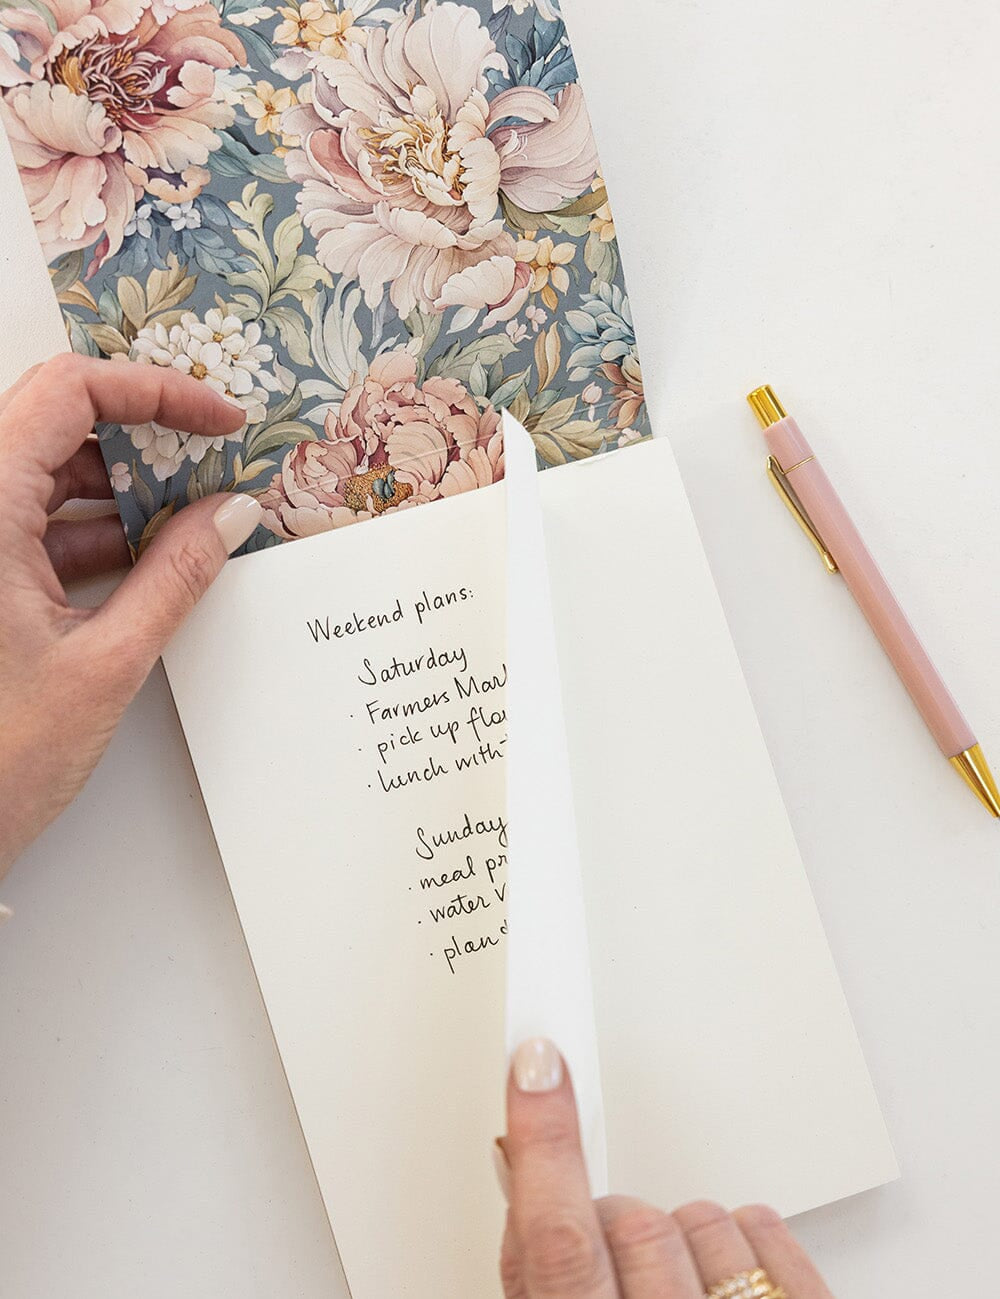 Weekend plans:
Saturday
· Farmers
· pick up
· lunch with
Sunday
· meal
· water
· plan